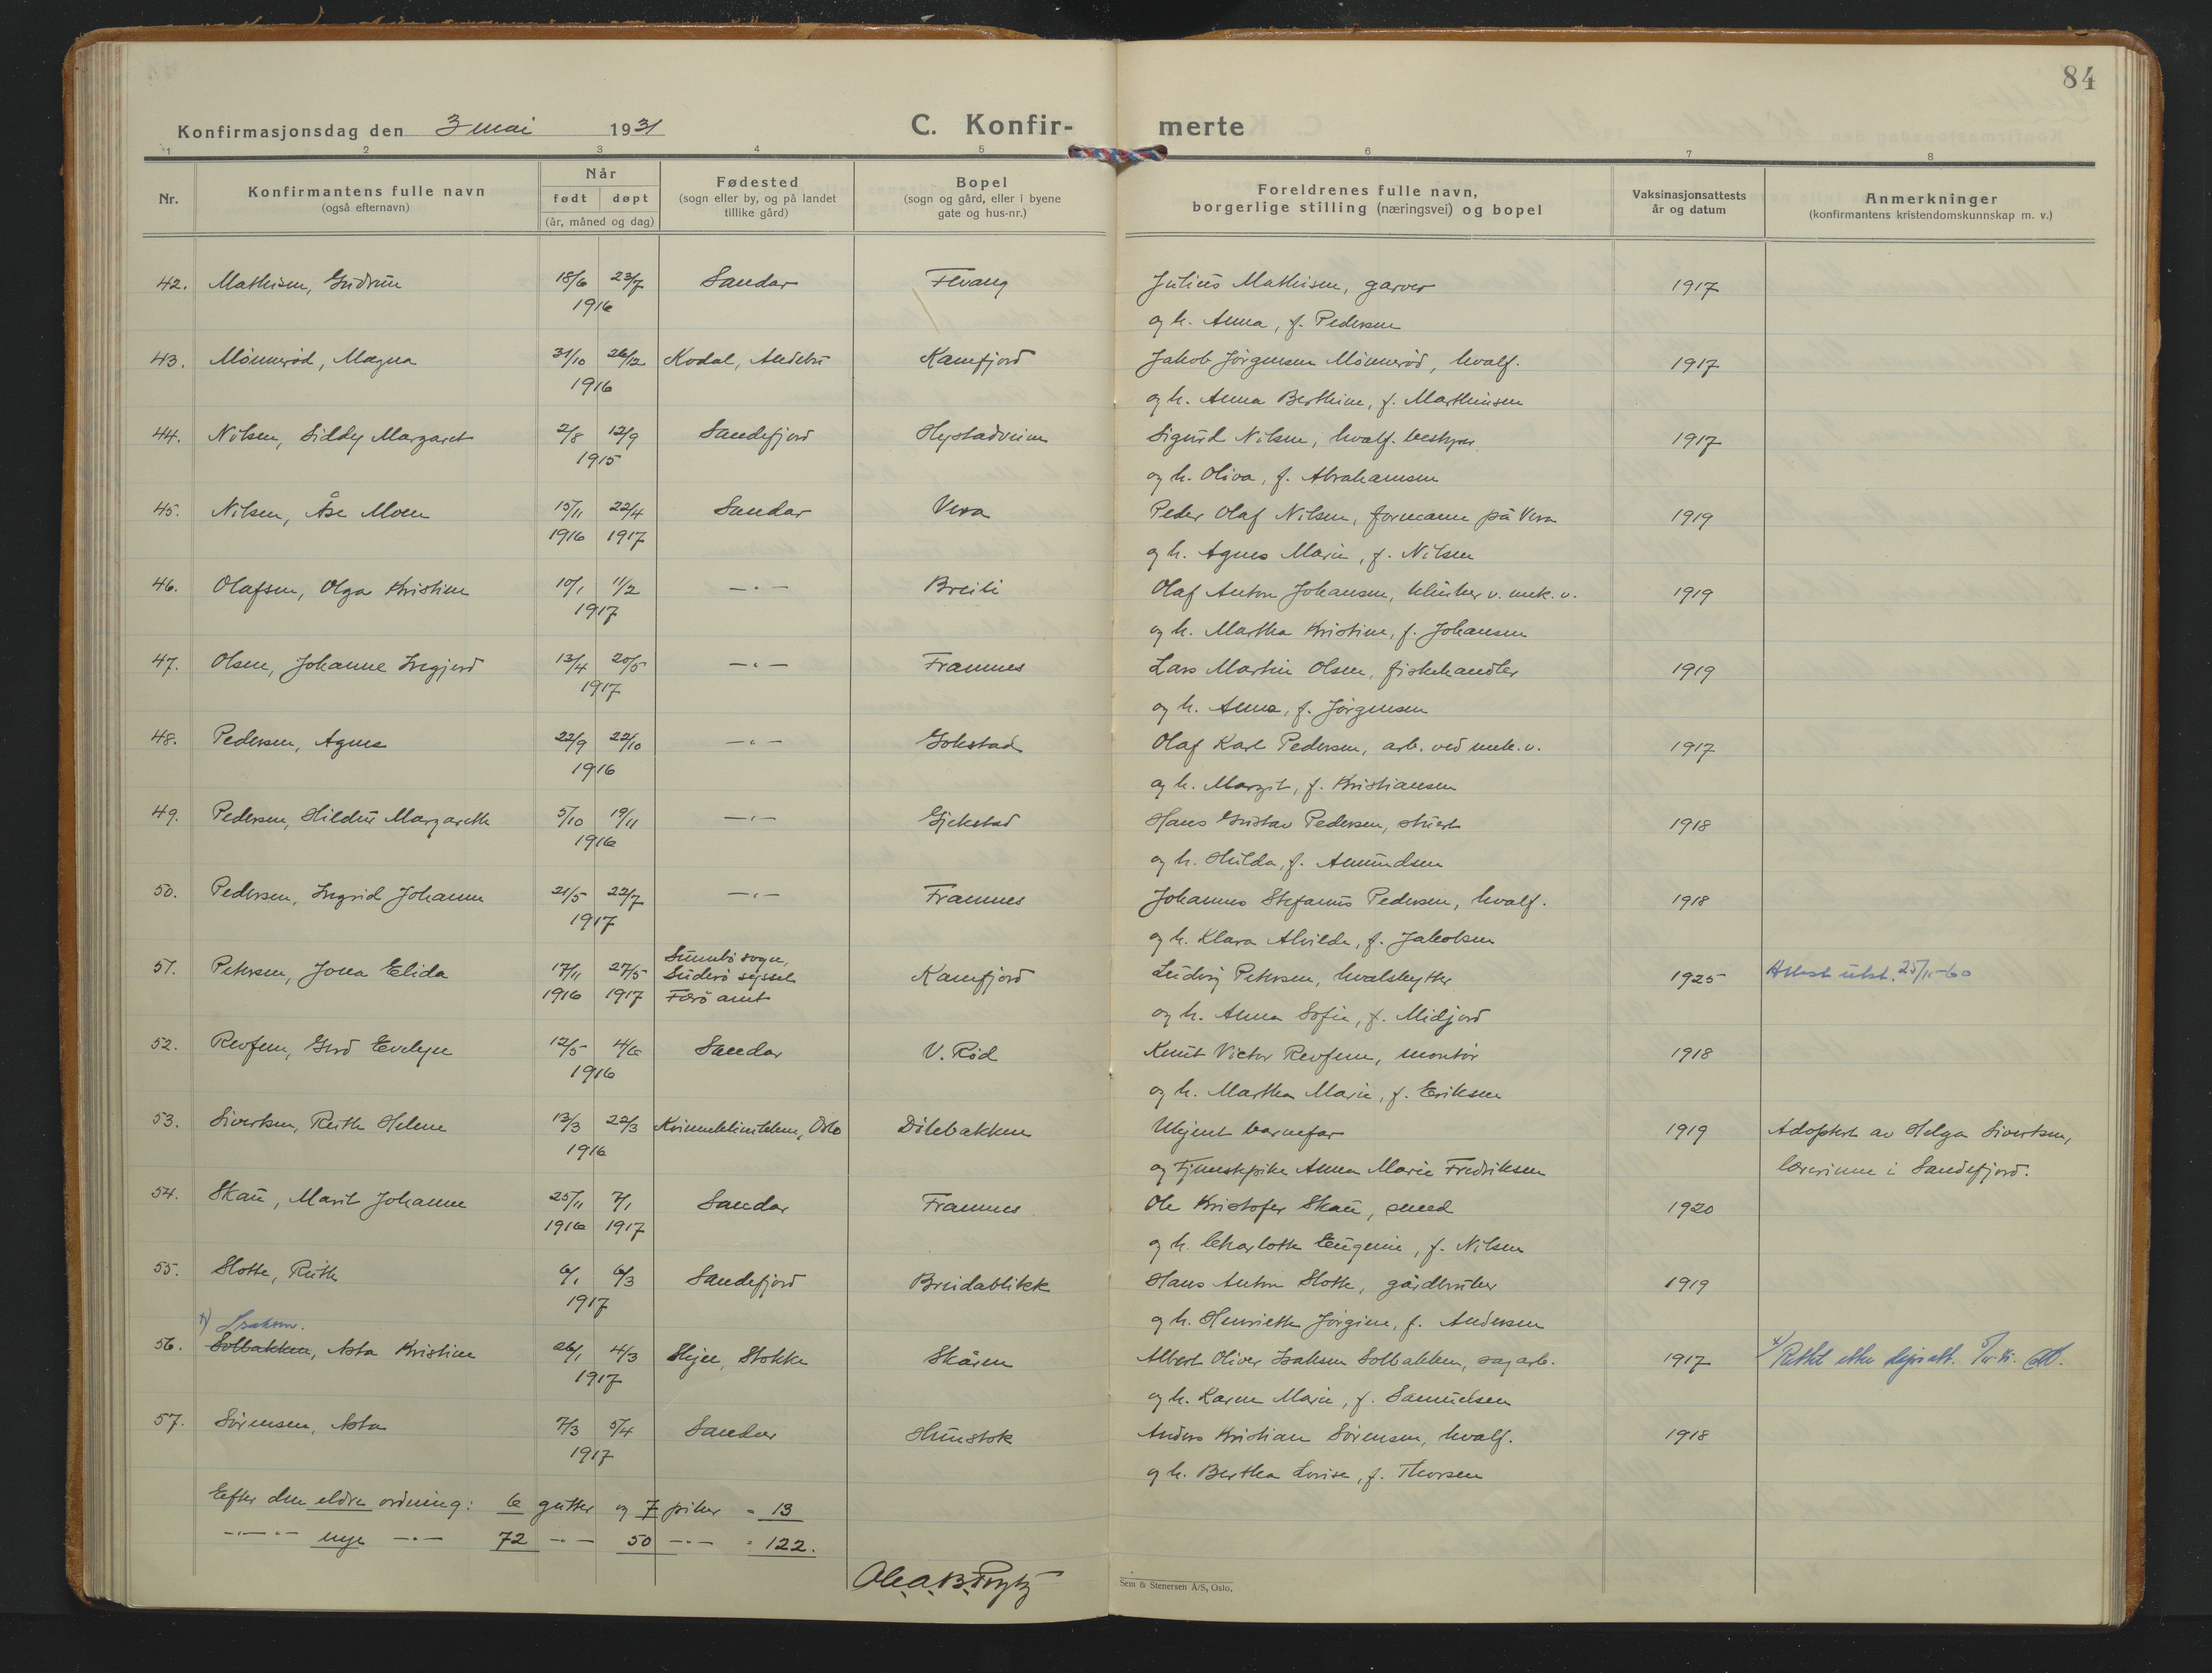 84
Konfirmasjonsdag den 3 mai 1931
C. Konfir- merte
1 2 3 4 5 6 7 8
Nr.
Konfirmantens fulle navn
(også efternavn)
Når
født døpt
(år, måned og dag)
Fødested
(sogn eller by, og på landet
tillike gård)
Bopel
(sogn og gård, eller i byene
gate og hus-nr.)
Foreldrenes fulle navn,
borgerlige stilling (næringsvei) og bopel
Vaksinasjonsattests
år og datum
Anmerkninger
(konfirmantens kristendomskunnskap m. v.)
42. Mathisen, Gudrun 18/6 23/7 Sandar Hvang Julius Mathisen, garver 1917
1916 og h. Anna, f. Pedersen
43. Mønnerød, Magna 31/10 26/12 Kodal, Andebu Kamfjord Jakob Jørgensen Mønnerød, hvalf. 1917
1916 og h. Anna Berthine, f. Marthinsen
44. Nilsen, Siddy Margaret 2/8 12/9 Sandefjord Hystadveien Sigurd Nilsen, hvalf. bestyrer 1917
1915 og h. Oliva, f. Abrahamsen
45. Nilsen, Åse Moen 15/11 22/4 Sandar Vera Peder Olaf Nilsen, formann på Vera 1919
1916 1917 og h. Agnes Marie, f. Nilsen
46. Olafsen, Olga Kristine 10/1 11/2 —·— Breili Olaf Anton Johansen, klinker v. mek. v. 1919
1917 og h. Martha Kristine, f. Johansen
47. Olsen, Johanne Ingjerd 13/4 20/5 —·— Framnes Lars Martin Olsen, fiskehandler 1919
1917 og h. Anna, f. Jørgensen
48. Pedersen, Agnes 22/9 22/10 —·— Gokstad Olaf Karl Pedersen, arb. ved mek. v. 1917
1916 og h. Margit, f. Kristiansen
49. Pedersen, Hildur Margarethe 5/10 19/11 —·— Gjekstad Hans Gustav Pedersen, stuert 1918
1916 og h. Hulda, f. Amundsen
50. Pedersen, Ingrid Johanne 21/5 22/7 —·— Framnes Johannes Stefanus Pedersen, hvalf. 1918
1917 og h. Klara Alvilde, f. Jakobsen
Sumbö sogn,
51. Petersen, Jona Elida 17/11 27/5 Suderö syssel Kamfjord Ludvig Petersen, hvalskytter 1925 Attest utst. 25/11-60
1916 1917 Færö amt
og h. Anna Sofie, f. Midjord
52. Revfem, Gerd Evelyn 12/5 4/6 Sandar V. Rød Knut Victor Revfem, montör 1918
1916 og h. Martha Marie, f. Eriksen
53. Sivertsen, Ruth Helene 13/3 22/3 Kvinneklinikken, Oslo Dölebakken Ukjent barnefar 1919 Adoptert av Helga Sivertsen,
1916 og Tjenestepike Anna Marie Fredriksen lærerinne i Sandefjord.
54. Skau, Marit Johanne 25/11 7/1 Sandar Framnes Ole Kristofer Skau, smed 1920
1916 1917 og h. Charlotte Eugenie, f. Nilsen
55. Slotte, Ruth 6/1 6/3 Sandefjord Breidablikk Hans Anton Slotte, gårdbruker 1919
1917 og h. Henriette Jørgine, f. Andersen
x) Isaksen.
56. Solbakken, Asta Kristine 26/1 4/3 Skjee, Stokke Skåren Albert Oliver Isaksen Solbakken, sagarb. 1917 x) Rettet etter dåpsatt.
1917 og h. Karen Marie, f. Samuelsen
57. Sørensen, Asta 7/3 5/4 Sandar Hunstok Anders Kristian Sørensen, hvalf. 1918
1917 og h. Bertha Lovise, f. Thorsen
Efter den eldre ordning: 6 gutter og 7 piker = 13
—·—·— nye —·— 72 —·— 50 —·— = 122.
Ole A. B. Prytz
Sem & Stenersen A/S, Oslo.